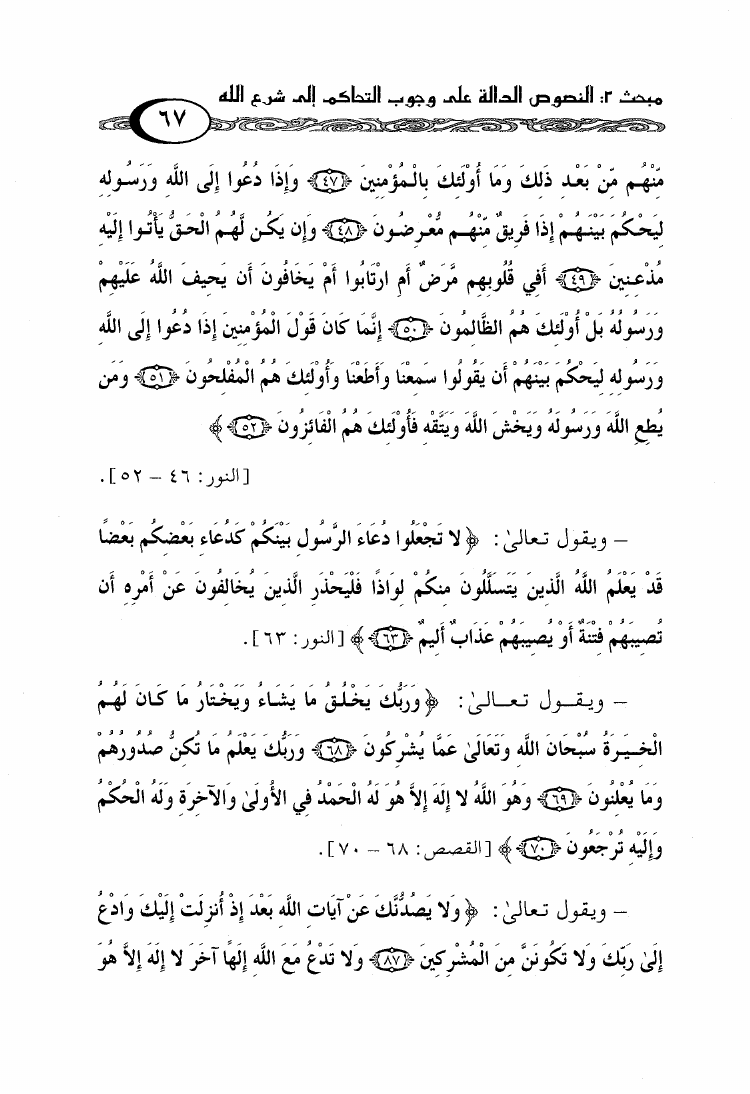 مبحث ٢: النصوص الدالة على وجوب التحاكم إلى شرع الله
٦٧
مِّنْهُم مِّنْ بَعْدِ ذَلِكَ وَمَا أُوْلَئِكَ بِالْمُؤْمِنِينَ ﴿٤٧﴾ وَإِذَا دُعُوا إِلَى اللَّهِ وَرَسُولِهِ
لِيَحْكُمَ بَيْنَهُمْ إِذَا فَرِيقٌ مِّنْهُم مُّعْرِضُونَ ﴿٤٨﴾ وَإِن يَكُن لَّهُمُ الْحَقُّ يَأْتُوا إِلَيْهِ
مُذْعِنِينَ ﴿٤٩﴾ أَفِي قُلُوبِهِم مَّرَضٌ أَمِ ارْتَابُوا أَمْ يَخَافُونَ أَن يَحِيفَ اللَّهُ عَلَيْهِمْ
وَرَسُولُهُ بَلْ أُوْلَئِكَ هُمُ الظَّالِمُونَ ﴿٥٠﴾ إِنَّمَا كَانَ قَوْلَ الْمُؤْمِنِينَ إِذَا دُعُوا إِلَى اللَّهِ
وَرَسُولِهِ لِيَحْكُمَ بَيْنَهُمْ أَن يَقُولُوا سَمِعْنَا وَأَطَعْنَا وَأُوْلَئِكَ هُمُ الْمُفْلِحُونَ ﴿٥١﴾ وَمَن
يُطِعِ اللَّهَ وَرَسُولَهُ وَيَخْشَ اللَّهَ وَيَتَّقْهِ فَأُوْلَئِكَ هُمُ الْفَائِزُونَ ﴿٥٢﴾ ﴾
[النور: ٤٦ – ٥٢].
– ويقول تعالىٰ: ﴿ لا تَجْعَلُوا دُعَاءَ الرَّسُولِ بَيْنَكُمْ كَدُعَاءِ بَعْضِكُم بَعْضًا
قَدْ يَعْلَمُ اللَّهُ الَّذِينَ يَتَسَلَّلُونَ مِنكُمْ لِوَاذًا فَلْيَحْذَرِ الَّذِينَ يُخَالِفُونَ عَنْ أَمْرِهِ أَن
تُصِيبَهُمْ فِتْنَةٌ أَوْ يُصِيبَهُمْ عَذَابٌ أَلِيمٌ ﴿٦٣﴾ ﴾ [النور: ٦٣].
– ويقول تعالىٰ: ﴿ وَرَبُّكَ يَخْلُقُ مَا يَشَاءُ وَيَخْتَارُ مَا كَانَ لَهُمُ
الْخِيَرَةُ سُبْحَانَ اللَّهِ وَتَعَالَىٰ عَمَّا يُشْرِكُونَ ﴿٦٨﴾ وَرَبُّكَ يَعْلَمُ مَا تُكِنُّ صُدُورُهُمْ
وَمَا يُعْلِنُونَ ﴿٦٩﴾ وَهُوَ اللَّهُ لا إِلَهَ إِلاَّ هُوَ لَهُ الْحَمْدُ فِي الأُولَىٰ وَالآخِرَةِ وَلَهُ الْحُكْمُ
وَإِلَيْهِ تُرْجَعُونَ ﴿٧٠﴾ ﴾ [القصص: ٦٨ – ٧٠].
– ويقول تعالىٰ: ﴿ وَلا يَصُدُّنَّكَ عَنْ آيَاتِ اللَّهِ بَعْدَ إِذْ أُنزِلَتْ إِلَيْكَ وَادْعُ
إِلَىٰ رَبِّكَ وَلا تَكُونَنَّ مِنَ الْمُشْرِكِينَ ﴿٨٧﴾ وَلا تَدْعُ مَعَ اللَّهِ إِلَهًا آخَرَ لا إِلَهَ إِلاَّ هُوَ